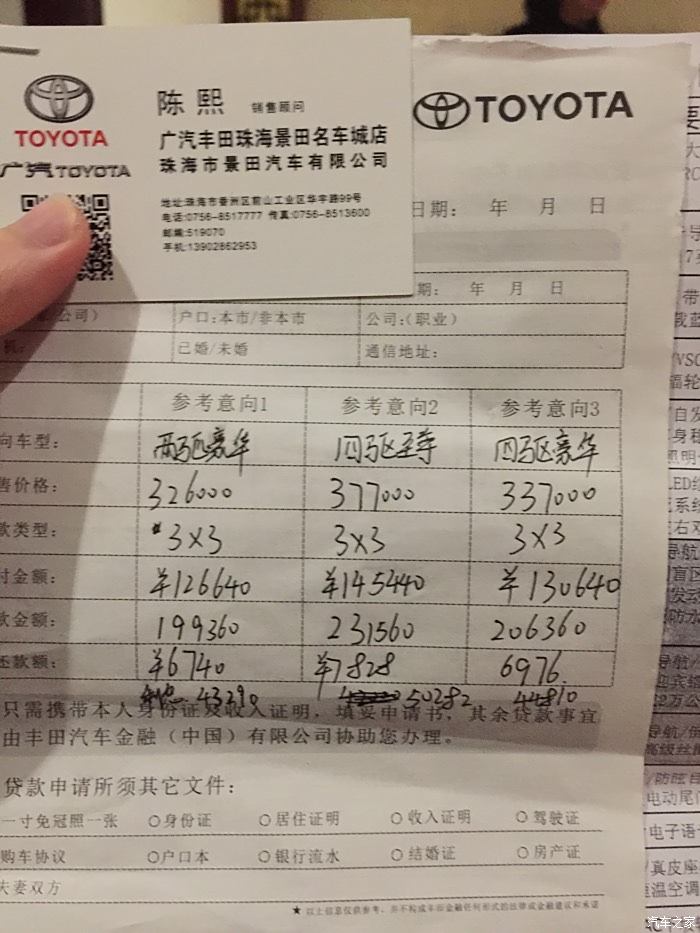 陈 熙 销售顾问
TOYOTA
广汽丰田珠海景田名车城店
珠海市景田汽车有限公司
广汽TOYOTA
地址:珠海市香洲区前山工业区华宇路99号
电话:0756-8517777 传真:0756-8513600
邮编:519070
手机:13902862953
TOYOTA
日期: 年 月 日
期: 年 月 日
公司) 户口:本市/非本市 公司:(职业)
机: 已婚/未婚 通信地址:
参考意向1 参考意向2 参考意向3
向车型: 两驱豪华 四驱至尊 四驱豪华
售价格: 326000 377000 337000
款类型: 3×3 3×3 3×3
付金额: ¥126640 ¥145440 ¥130640
款金额: 199360 231560 206360
还款额: ¥6740 ¥7828 6976.
43290 50282 44810
只需携带本人身份证及收入证明，填妥申请书，其余贷款事宜
由丰田汽车金融（中国）有限公司协助您办理。
贷款申请所须其它文件:
一寸免冠照一张 ○身份证 ○居住证明 ○收入证明 ○驾驶证
购车协议 ○户口本 ○银行流水 ○结婚证 ○房产证
夫妻双方
★ 以上信息仅供参考，并不构成丰田金融任何形式的法律或金融建议和承诺
汽车之家